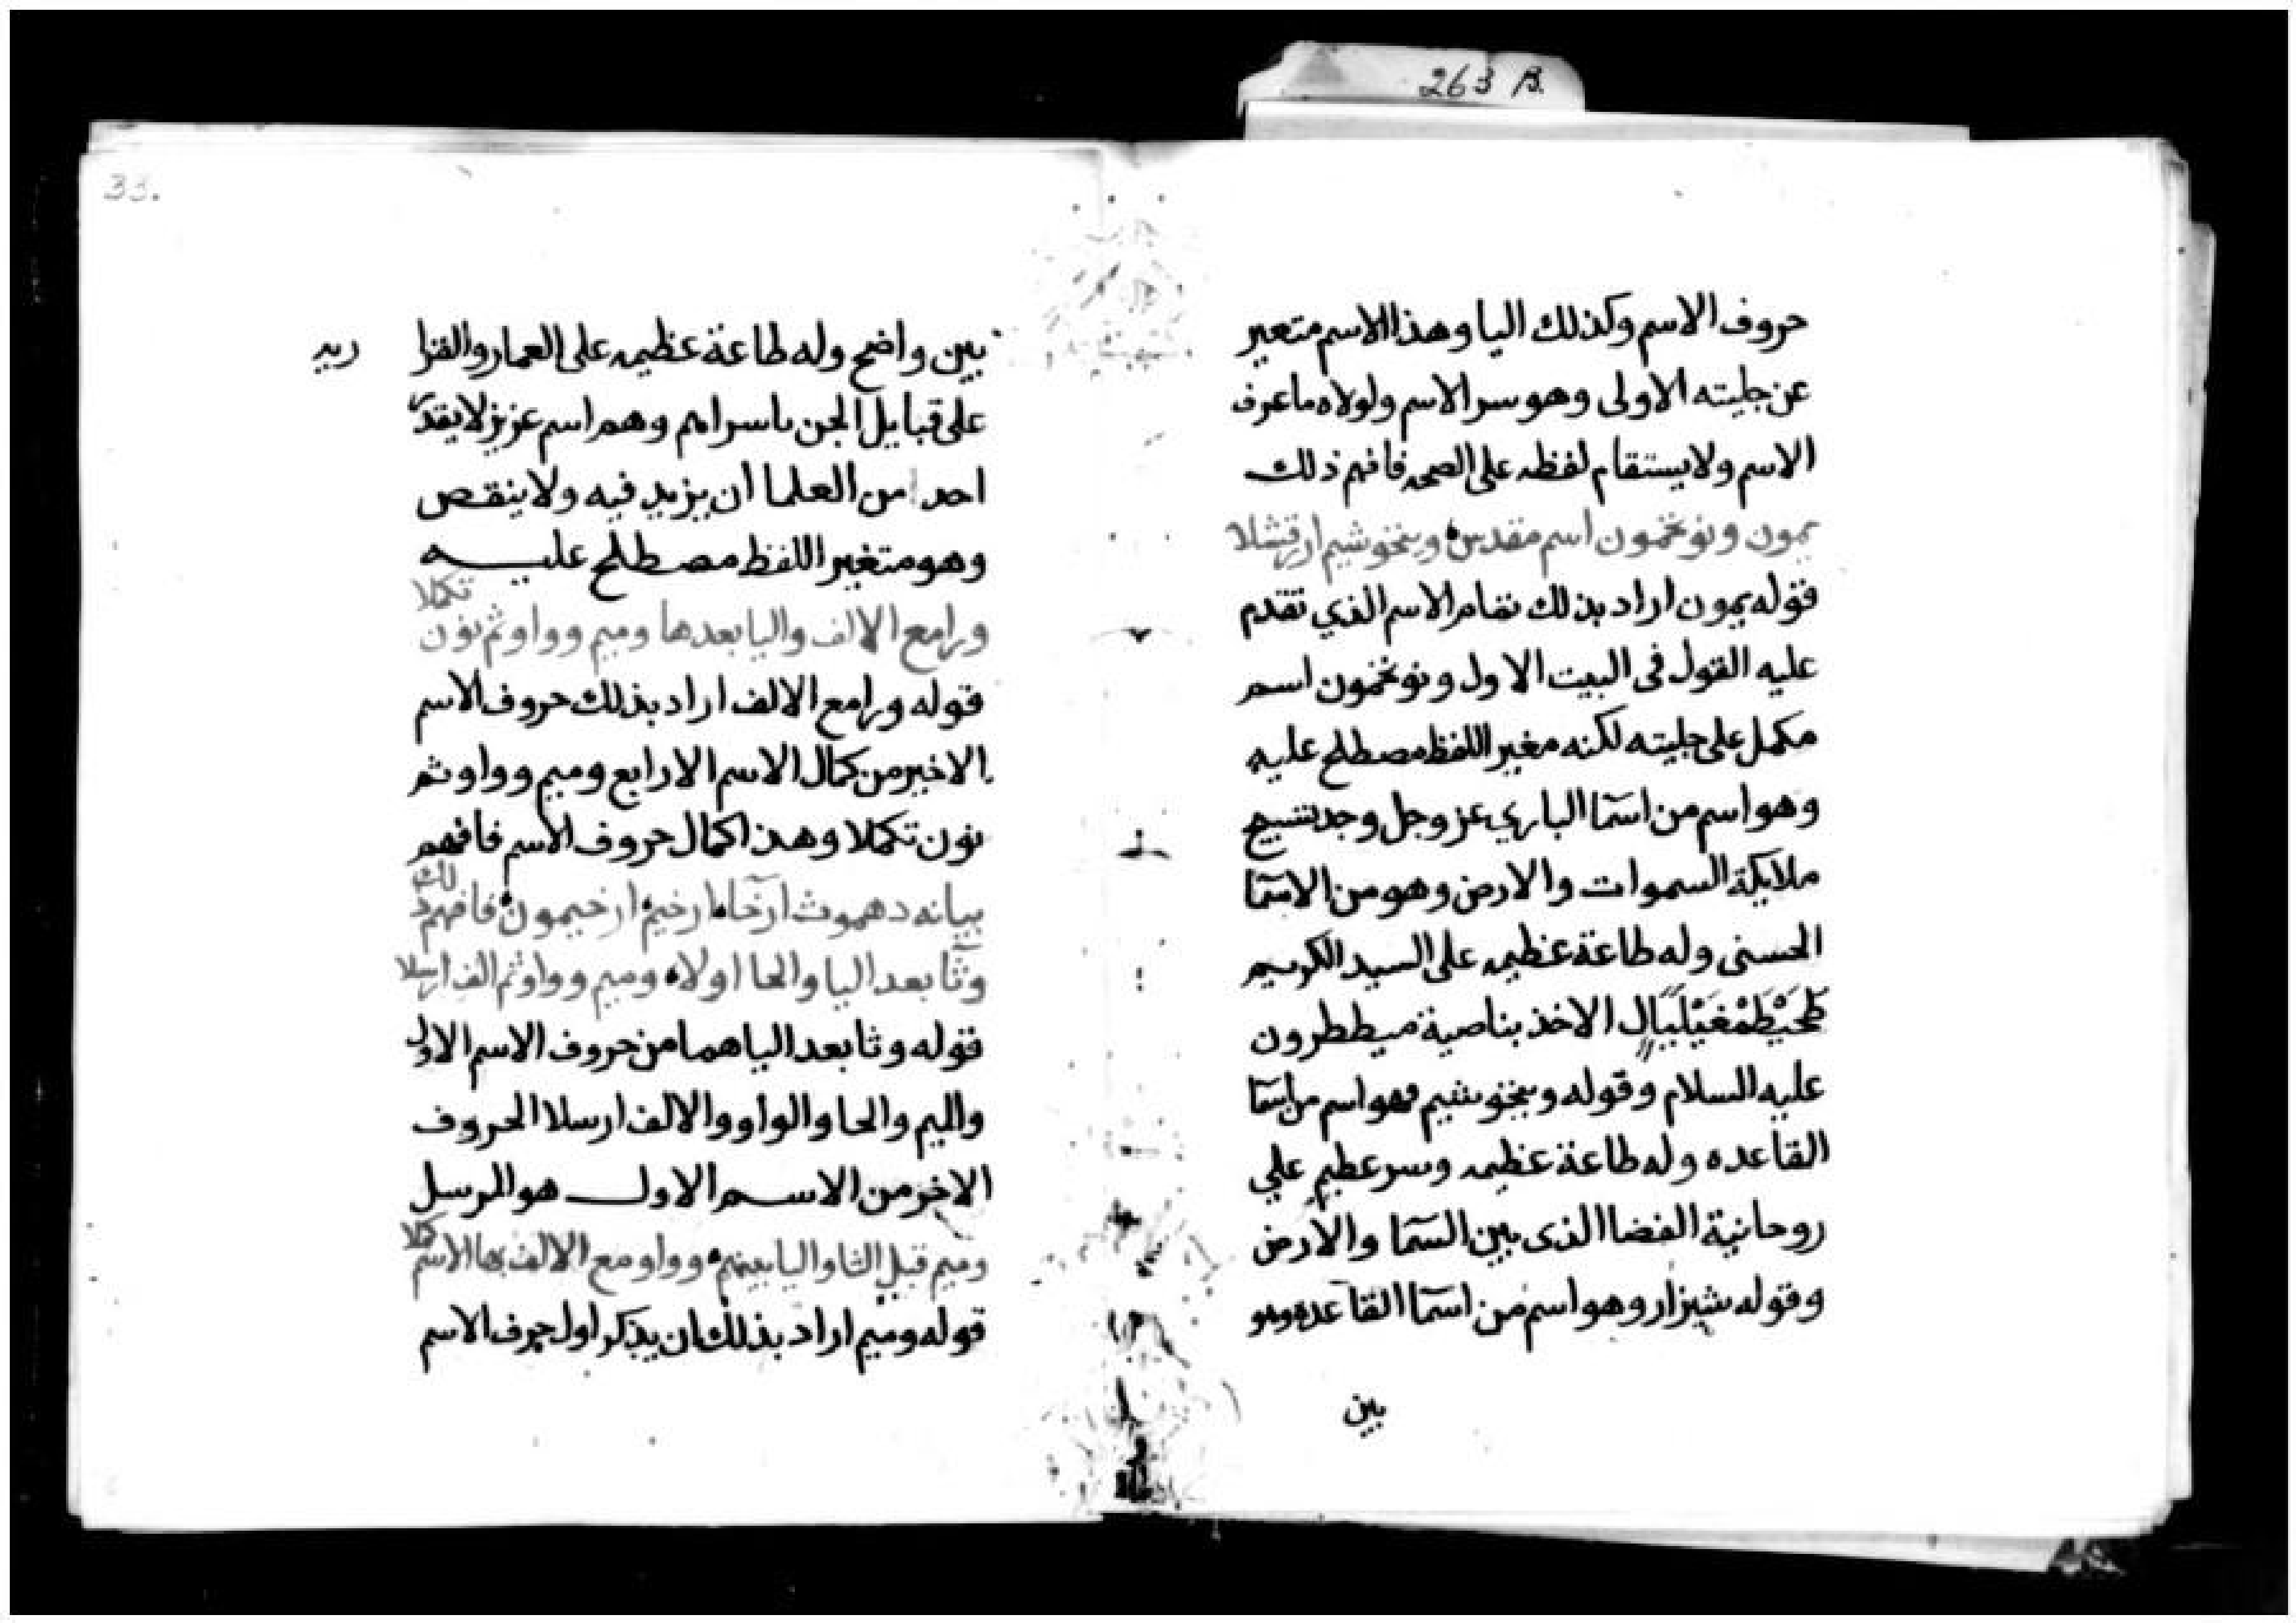 263 B.
حروف الاسم وكذلك اليا وهذا الاسم متعير
عن جليته الاولى وهو سر الاسم ولولاه ما عرف
الاسم ولا يستقام لفظه على الصحه فافهم ذلك
يمون ونوخمون اسم مقدس وبخوشيم
قوله يمون اراد بذلك تمام الاسم الذي تقدم
عليه القول فى البيت الاول ونوخمون اسم
مكمل على جليته لكنه مغير اللفظ مصطلح عليه
وهو اسم من اسمآ الباري عز وجل وجد تسبيح
ملايكة السموات والارض وهو من الاسمآ
الحسنى وله طاعة عظيمه على السيد الكريم
الاخذ بناصية ميططرون
عليه السلام وقوله وبخوشيم فهو اسم من اسمآ
القاعده وله طاعة عظيمه وسر عظيم علي
روحانية الفضا الذى بين السمآ والارض
وقوله شيزار وهو اسم من اسمآ القاعده وهو
بين
33.
بين واضح وله طاعة عظيمه على العمار والفزا
ريد
على قبايل الجن باسرهم وهم اسم عزيز لا يقدر
احد من العلما ان يزيد فيه ولا ينقص
وهو متغير اللفظ مصطلح عليه
ورامع الالف واليا بعدها وميم وواو ثم نون تكملا
قوله ورامع الالف اراد بذلك حروف الاسم
الاخير من كمال الاسم الارابع وميم وواو ثم
نون تكملا وهذا كمال حروف الاسم فافهم
بيانه دهموث ارخآه ارخيم ارخيمون فافهم ذلك
وثآ بعد اليا والحا اولاه وميم وواو ثم الف ارسلا
قوله وثا بعد اليا هما من حروف الاسم الاول
والميم والحا والواو والالف ارسلا الحروف
الاخر من الاسم الاول هو المرسل
وميم قبل الثا واليا بينهم وواو مع الالف بها الاسم كملا
قوله وميم اراد بذلك ان يذكر اول حرف الاسم